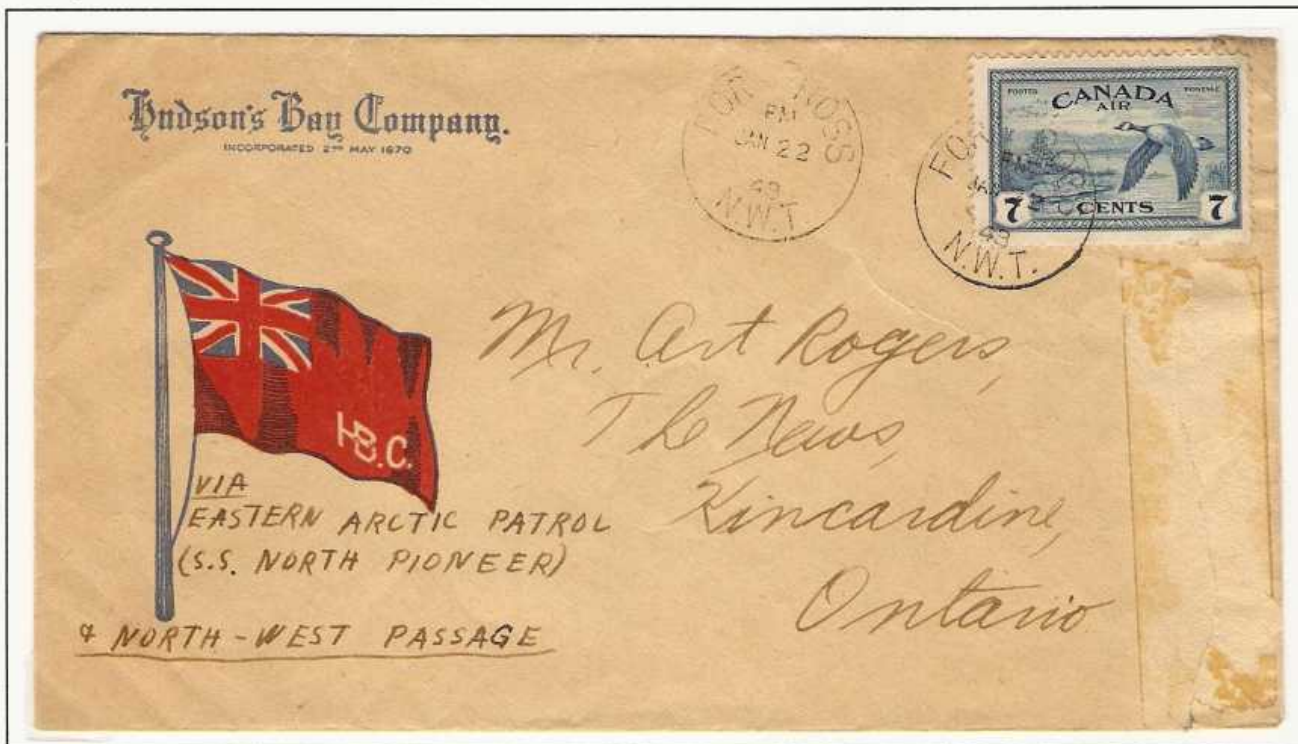 Hudson's Bay Company.
INCORPORATED 2ND MAY 1670
FORT ROSS
PM
JAN 22
49
N.W.T.
POSTES POSTAGE
CANADA
AIR
7 CENTS 7
FORT ROSS
PM
JAN 22
49
N.W.T.
H.B.C.
Mr. Art Rogers,
The News,
Kincardine,
Ontario
VIA
EASTERN ARCTIC PATROL
(S.S. NORTH PIONEER)
& NORTH-WEST PASSAGE